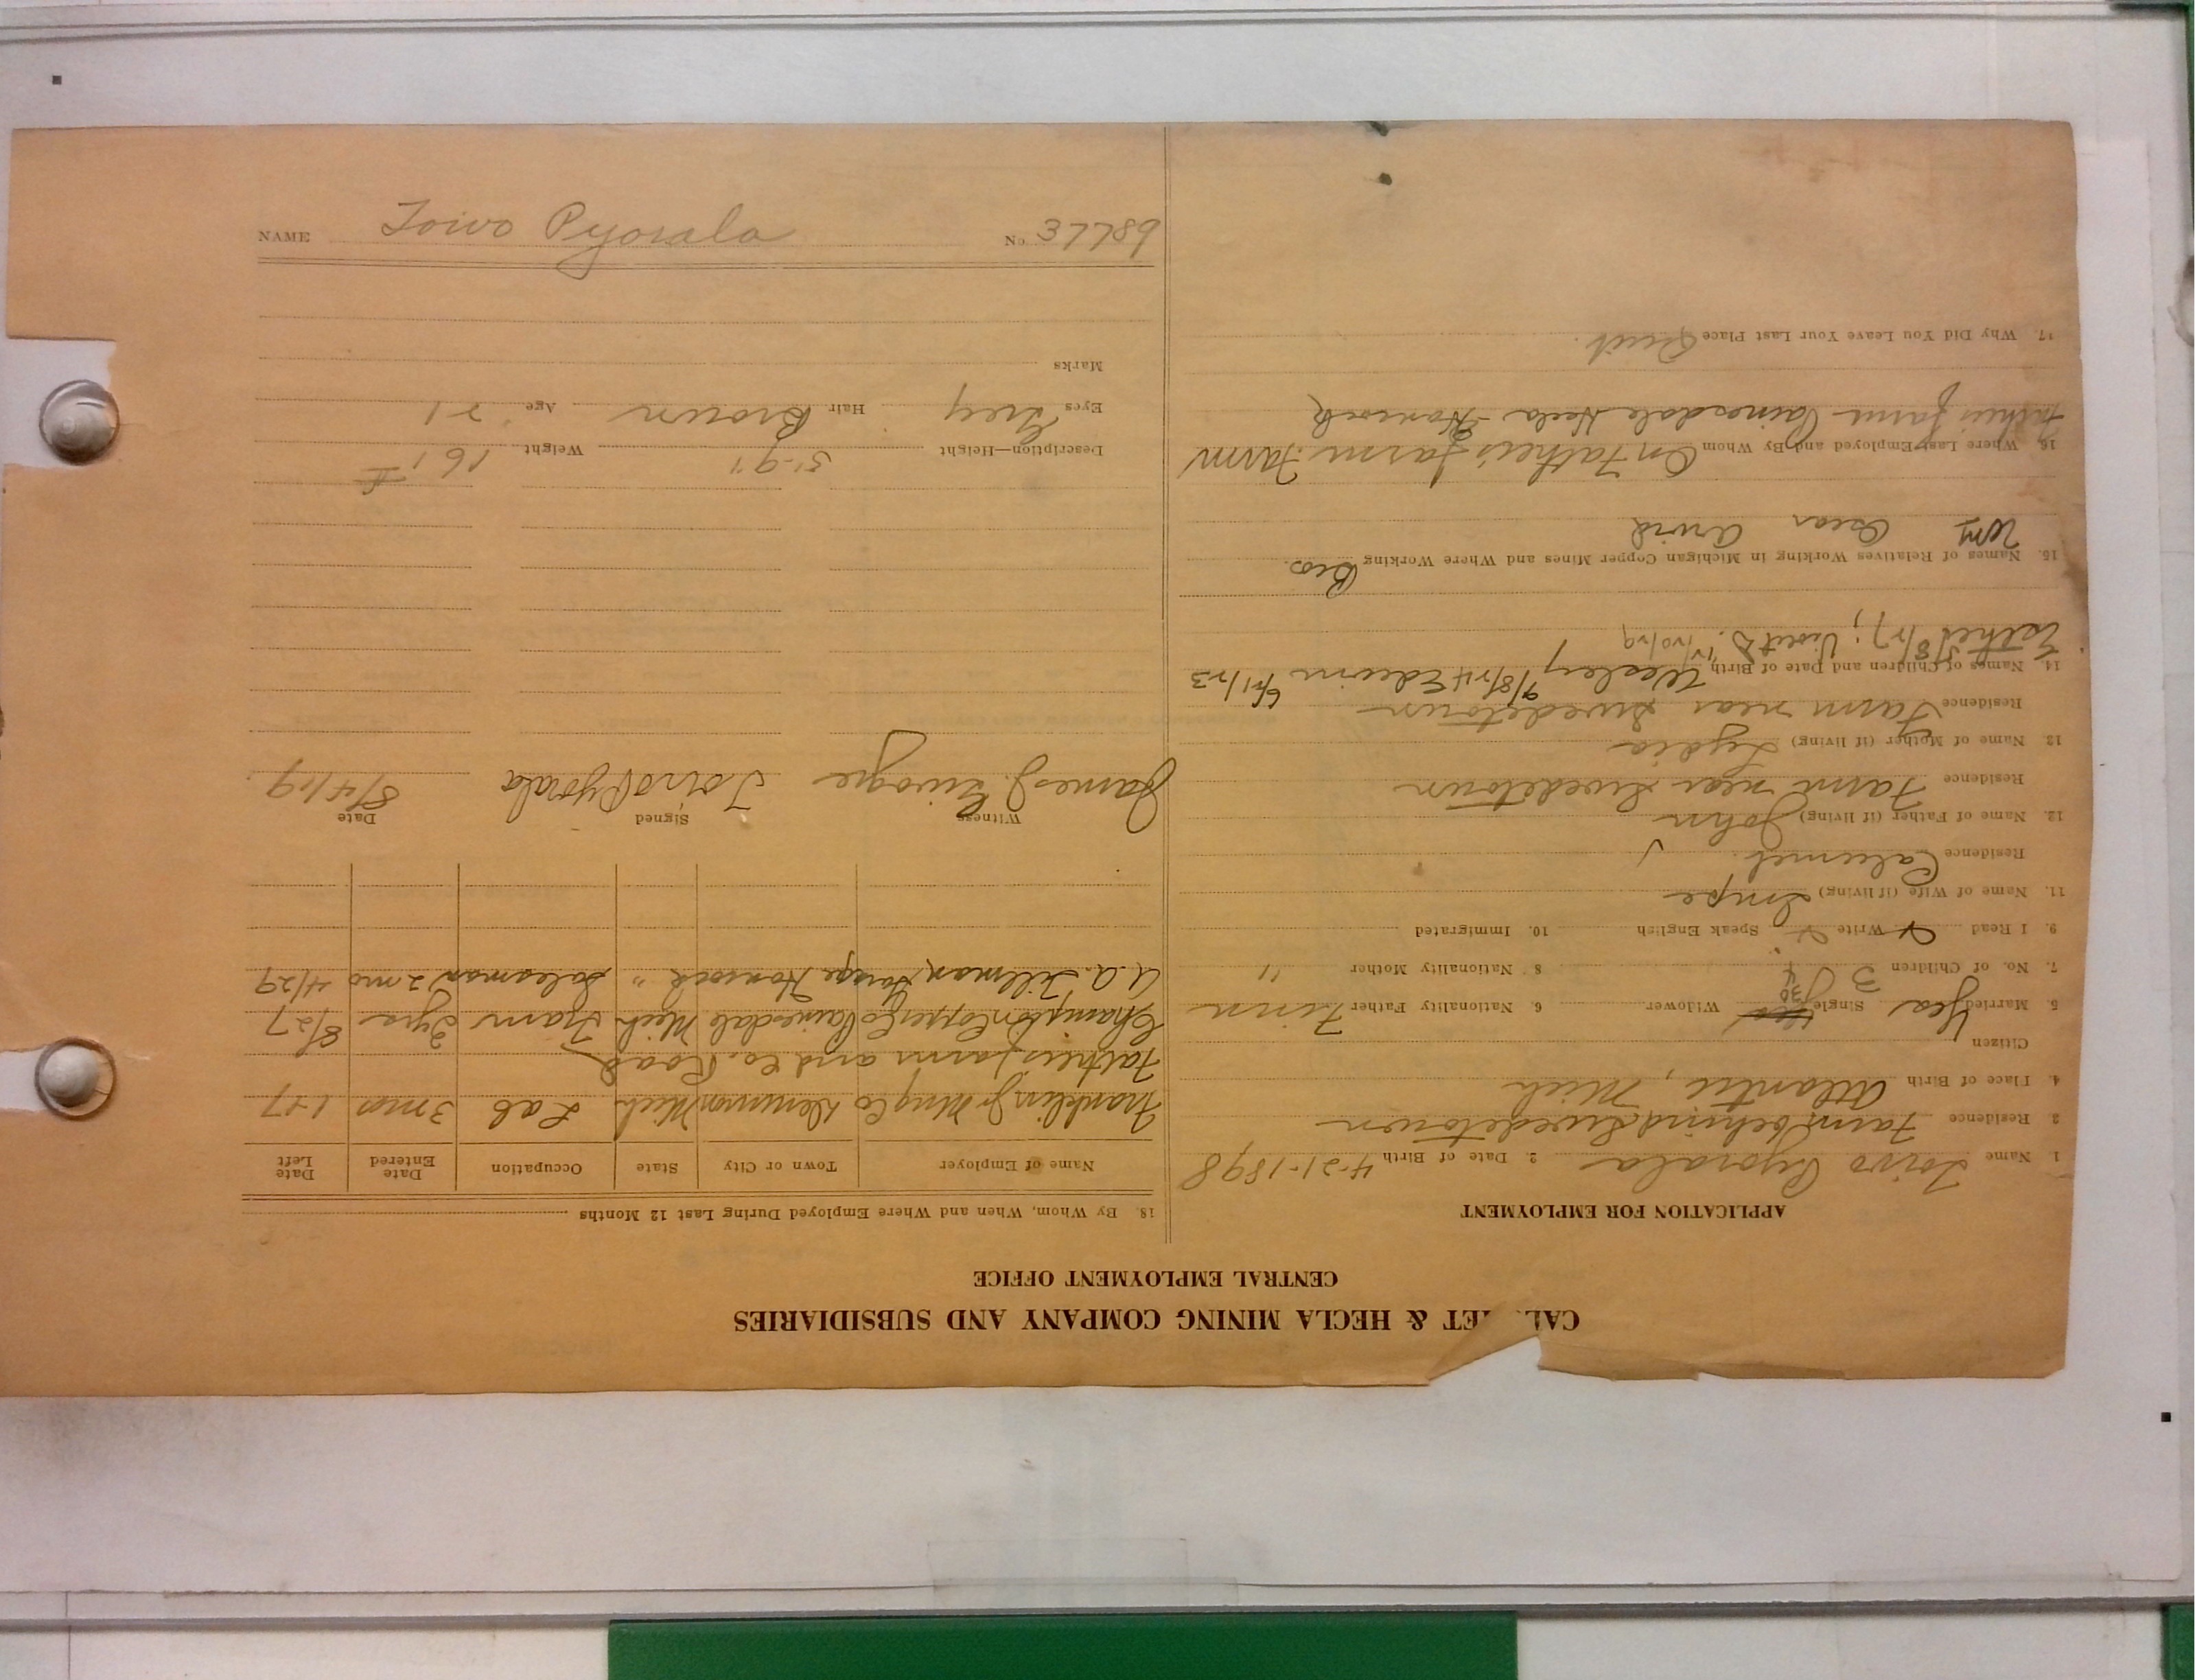 CAL ET & HECLA MINING COMPANY AND SUBSIDIARIES
CENTRAL EMPLOYMENT OFFICE
APPLICATION FOR EMPLOYMENT
1. Name Toivo Pyorala 2. Date of Birth 4-21-1898
3 Residence Farm behind Swedetown
4. Place of Birth Atlantic, Mich
Citizen
5. Married Yes Single Widower 6. Nationality Father Finn
7. No. of Children 3 4 8. Nationality Mother "
9. I Read Write Speak English 10. Immigrated
11. Name of Wife (if living) Impe
Residence Calumet.
12. Name of Father (if living) John
Residence Farm near Swedetown
13. Name of Mother (if living) Lydia
Residence Farm near Swedetown
14. Names of Children and Date of Birth Wesley 9/8/24 Edwin 6/21/23
Esther 5/8/27; Violet D. 12/20/29
15. Names of Relatives Working in Michigan Copper Mines and Where Working Bros.
Wm Oscar Arvid
16. Where Last Employed and By Whom On Father's farm Farm
Father's farm Painesdale Hecla - Hancock
17. Why Did You Leave Your Last Place Quit.
18. By Whom, When and Where Employed During Last 12 Months
Name of Employer Town or City State Occupation Date Entered Date Left
Franklin Jr Mng Co Demmon Mich Lab 3 mos 1-27
Father's farm and Co. Road
Champion Copper Co Painesdale Mich Tram 2 yrs 8/27
U.A. Tillman, Garage Hancock " Salesman 2 mo 4/29
Witness Signed Date
James J. Toivo Pyorala 8/4/29
Description—Height 5'-9" Weight 161 #
Eyes Grey Hair Brown Age
Marks
NAME Toivo Pyorala No.